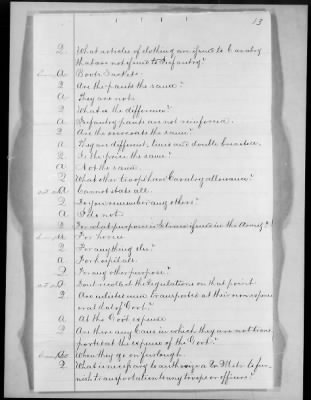 13
Q What articles of clothing are issued to Cavalry
that are not issued to Infantry?
A Boots Jackets.
Q Are the pants the same?
A They are not.
Q What is the difference?
A Infantry pants are not reinforced.
Q Are the overcoats the same?
A They are different, lines and double breasted.
Q Is the price the same?
A Not the same.
Q What other troops have Cavalry allowance?
A Cannot state all.
Q Do you remember any others?
A I do not.
Q For what purpose is straw issued in the Army?
A For horses
Q For anything else?
A For hospitals.
Q For any other purpose?
A Don't recollect the Regulations on that point.
Q Are enlisted men transported at their own expense
or at that of Govt.?
A At the Govt expense
Q Are there any Cases in which they are not trans-
ported at the expense of the Govt.?
A When they go on furlough.
Q What is necessary to authorize a Qr. Mstr. to fur-
nish transportation to any troops or officers?